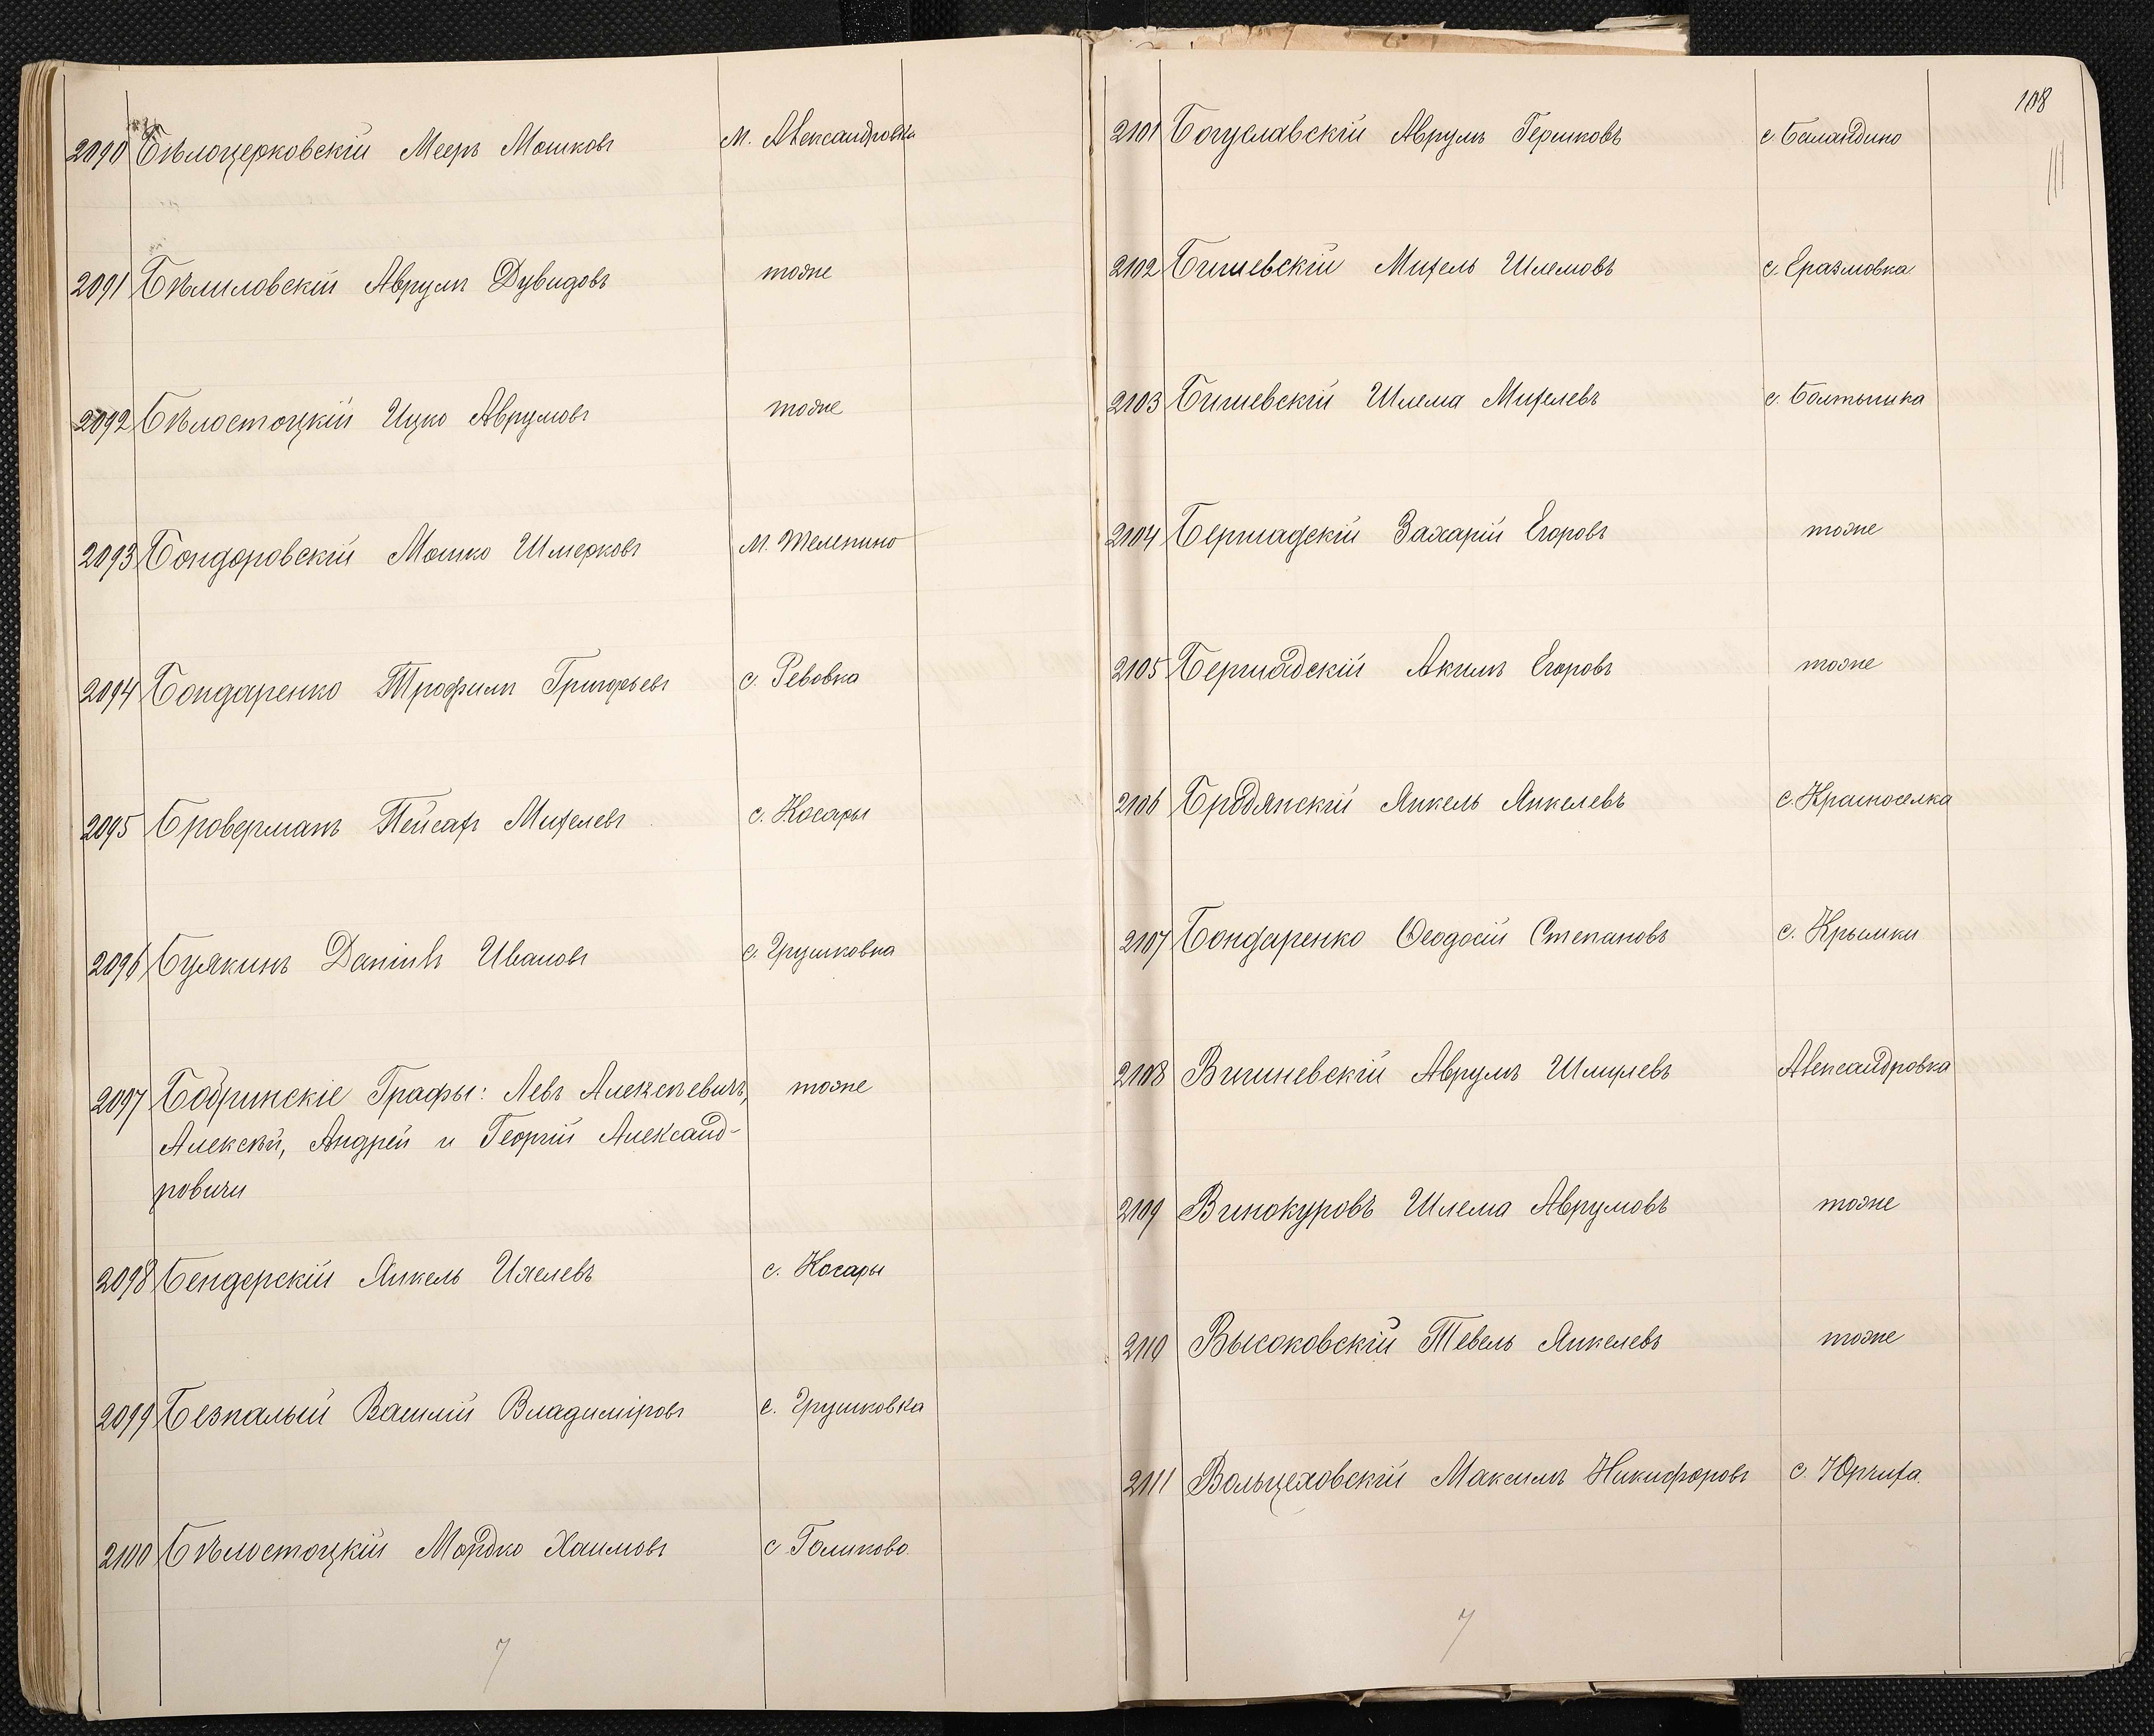 2090 Бѣлоцерковскій Мееръ Мошковъ м. Александровка
2091 Бѣлиловскій Аврумъ Дувидовъ тоже
2092 Бѣлостоцкій Ицко Аврумовъ тоже
2093 Бондоровскій Мошко Шмерковъ м. Телепино
2094 Бондаренко Трофимъ Григорьевъ с. Ревовка
2095 Броверманъ Пейсахъ Михелевъ с. Косары
2096 Булкинъ Даніилъ Ивановъ с. Грушковка
2097 Бобринскіе Графы: Левъ Алексѣевичъ, тоже
Алексѣй, Андрей и Георгій Александ-
ровичи
2098 Бендерскій Янкель Ихелевъ с. Косары
2099 Безпалый Василій Владиміровъ с. Грушковка
2100 Бѣлостоцкій Мордко Хаимовъ с. Голиково.
7
108
2101 Богуславскій Аврумъ Гершковъ с. Баландино
2102 Бишевскій Михель Шлемовъ с. Еразмовка
2103 Бишевскій Шлема Михелевъ с. Болтышка
2104 Бершадскій Захарій Егоровъ тоже
2105 Бершадскій Акимъ Егоровъ тоже
2106 Бродянскій Янкель Янкелевъ с. Красноселка
2107 Бондаренко Ѳеодосій Степановъ с. Крымки
2108 Вишневскій Аврумъ Шмулевъ Александровка
2109 Винокуровъ Шлема Аврумовъ тоже
2110 Высоковскій Тевель Янкелевъ тоже
2111 Вольцеховскій Максимъ Никифоровъ с. Юрчиха.
7